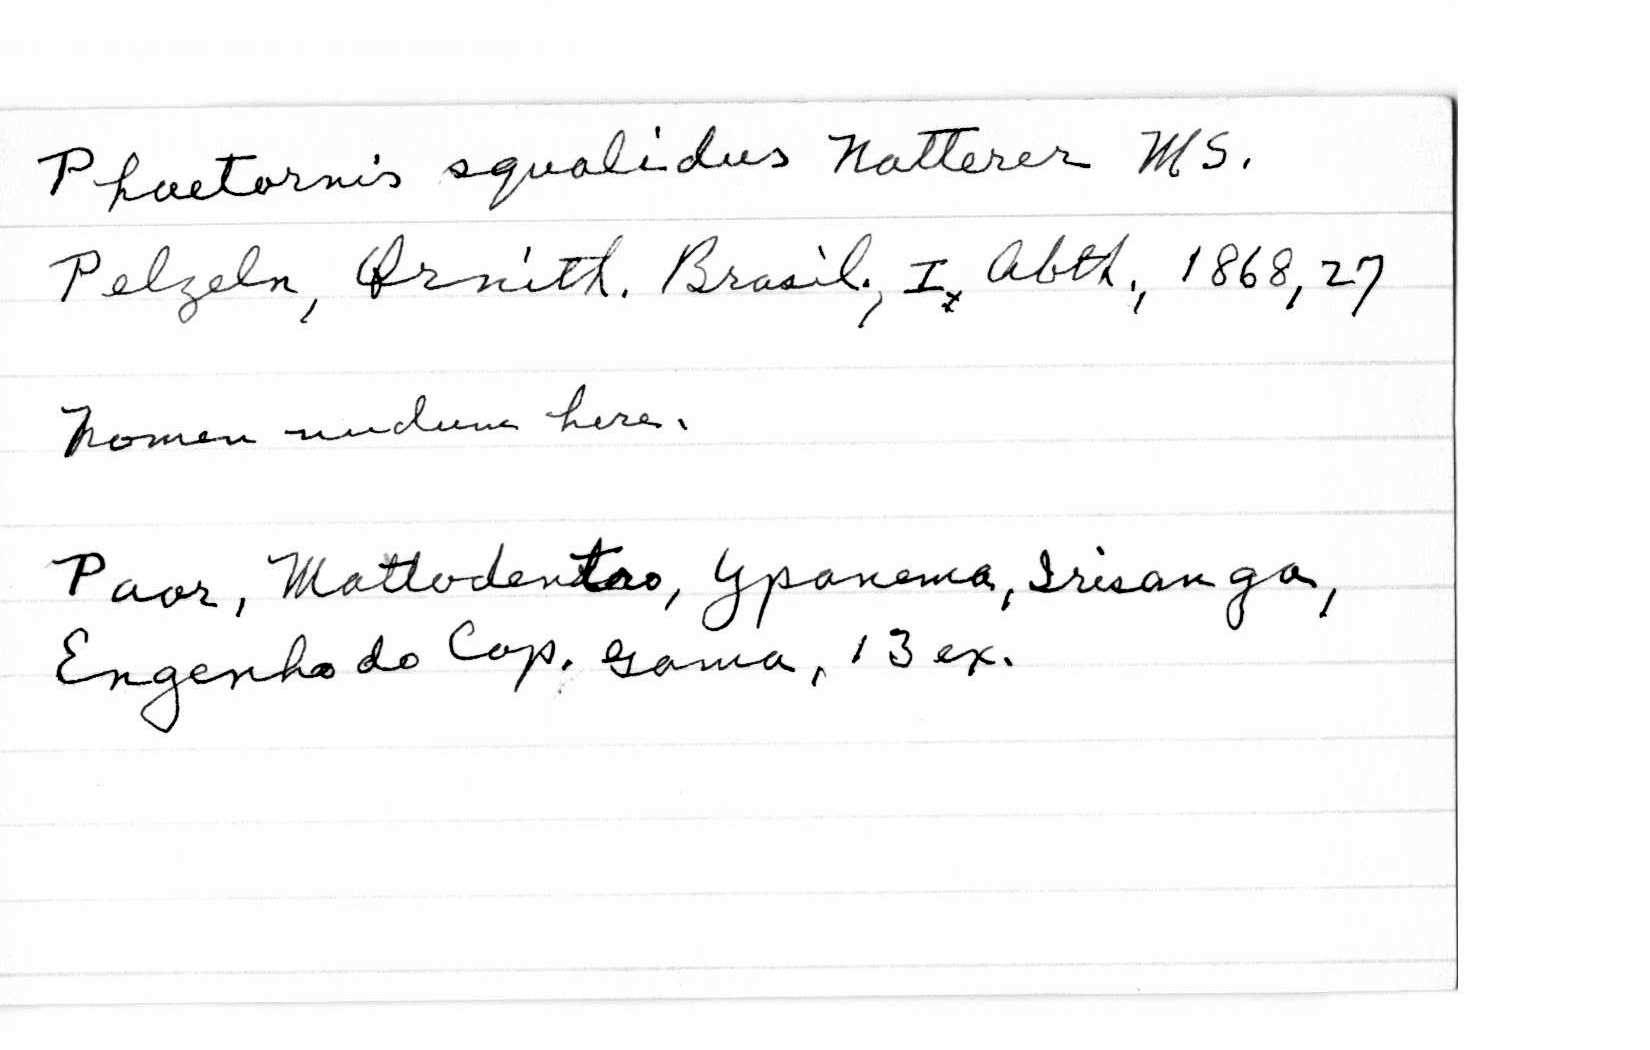 Phaetornis squalidus Natterer MS.
Pelzeln, Ornith. Brasil., I. Abth., 1868, 27
Nomen nudum here.
Paor, Mattodentro, Ypanema, Irisanga,
Engenho do Cap. Gama, 13 ex.